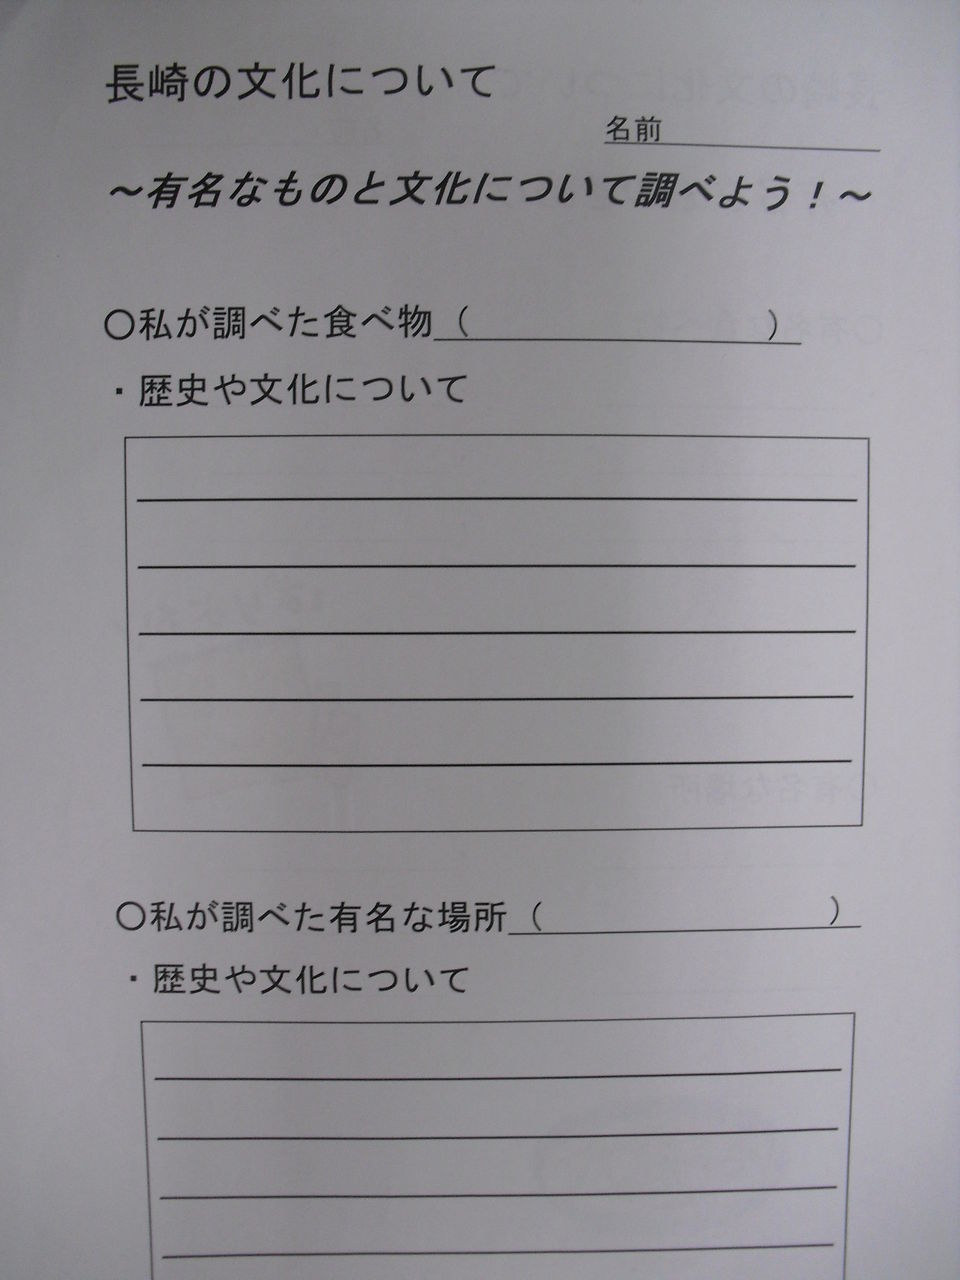 長崎の文化について
名前
～有名なものと文化について調べよう！～
○私が調べた食べ物（　　　　　　　　）
・歴史や文化について
○私が調べた有名な場所（　　　　　　　　）
・歴史や文化について